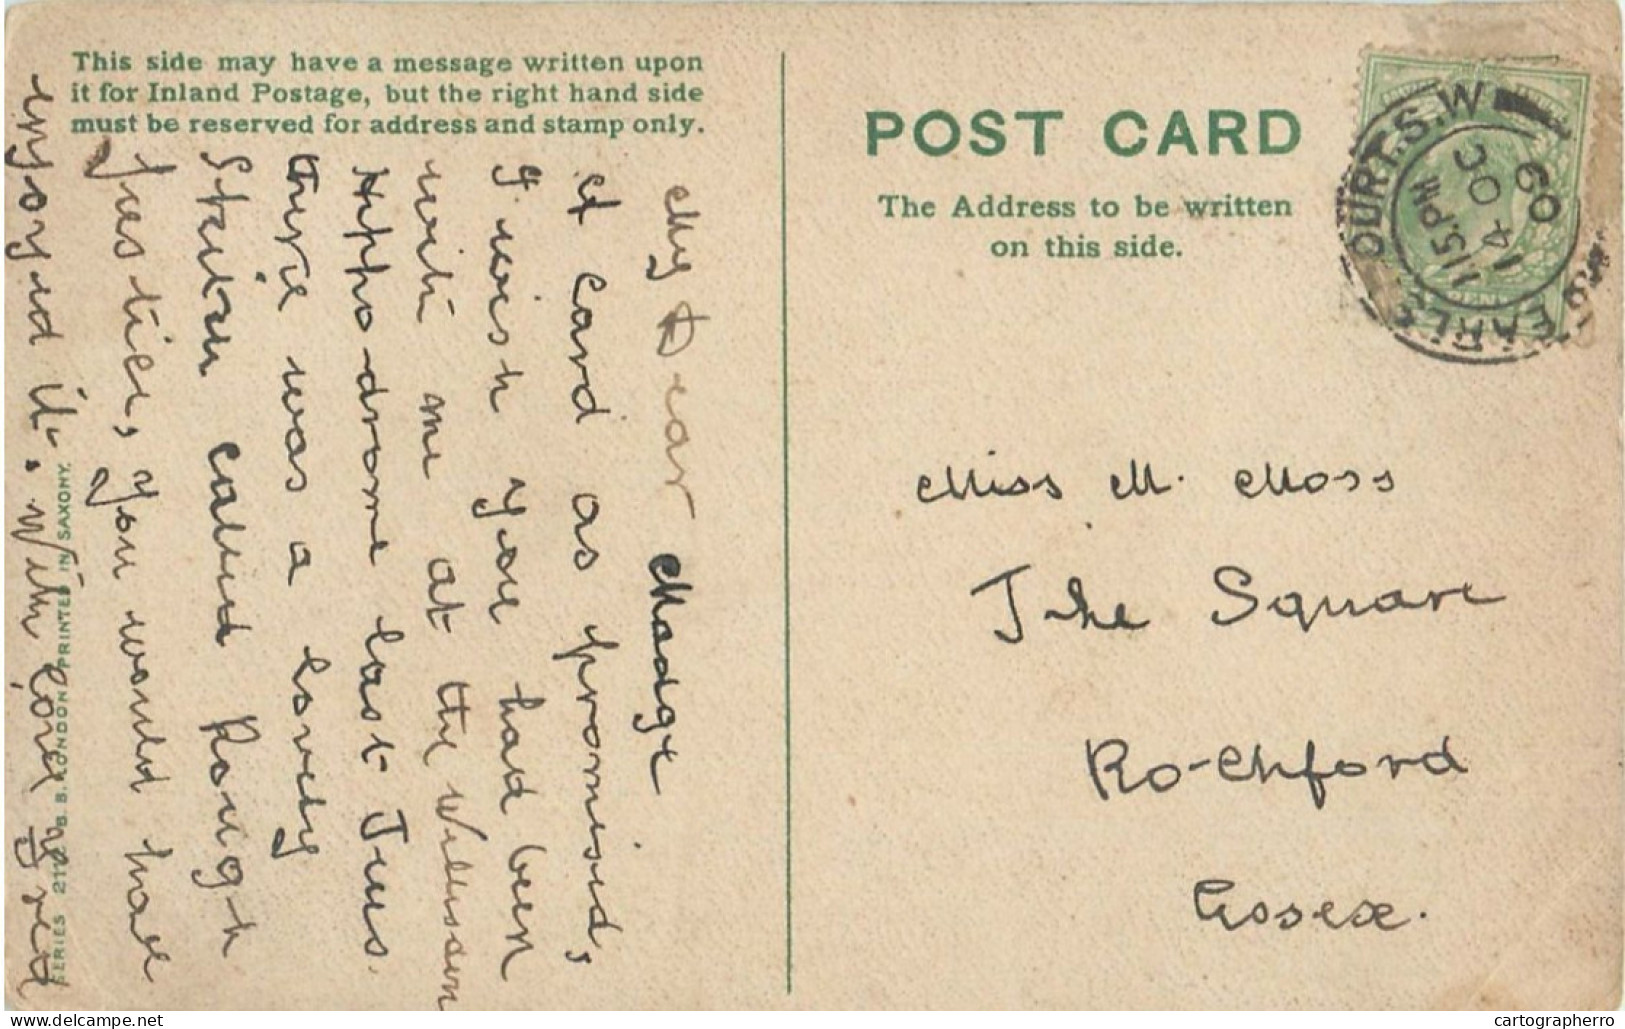 This side may have a message written upon
it for Inland Postage, but the right hand side
must be reserved for address and stamp only.
POST CARD
The Address to be written
on this side.
EARLS COURT. S.W
11 15. PM
14 OC
09
My Dear Madge
A card as promised,
I wish you had been
with me at the
Hippodrome last Tues.
There was a lovely
called Rough
Justice, you would have
enjoyed it. With love
Miss M. Moss
The Square
Ro-chford
Essex.
SERIES 2112 B. B. LONDON PRINTED IN SAXONY.
delcampe.net
cartographerro